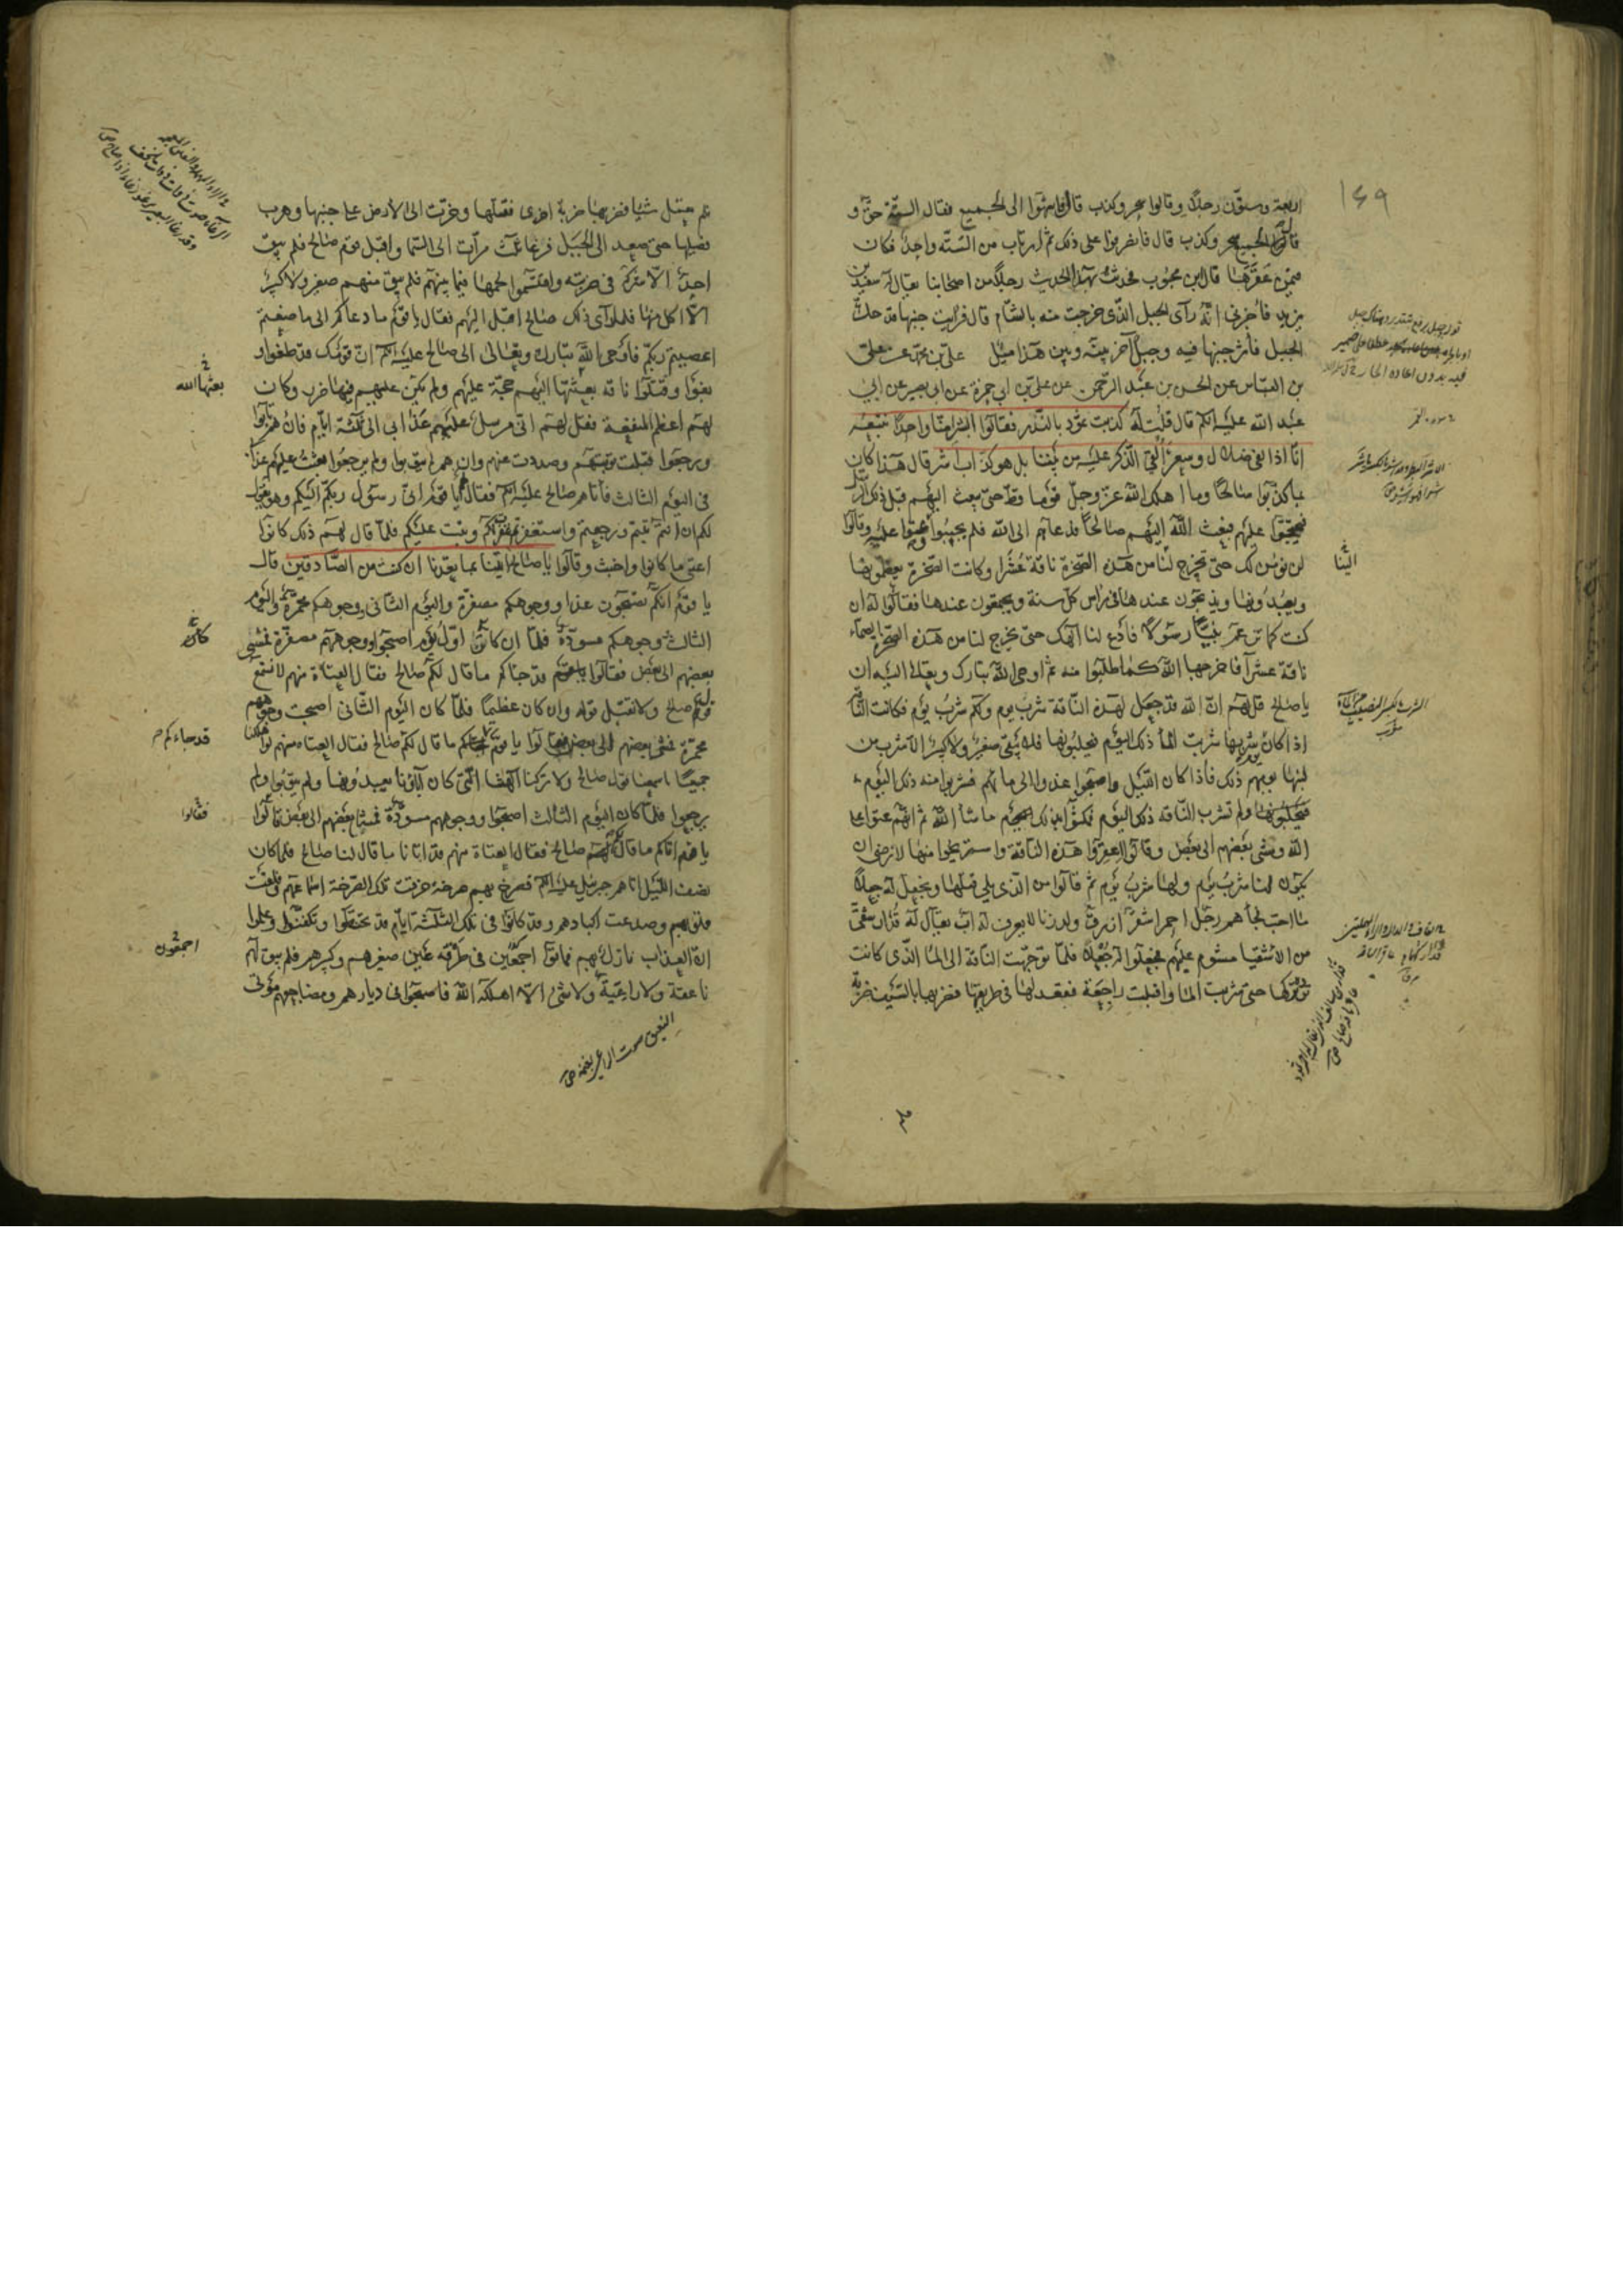 اربعة وستون رجلا وقالوا سحر وكذب قال فانصرفوا الى الجميع فقال الستة حق و
قال الجميع سحر وكذب قال فانصرفوا على ذلك ثم ارتاب من الستة واحد فكان
فيمن عقرها قال ابن محبوب فحدثت بهذا الحديث رجلا من اصحابنا يقال له سعيد بن
يزيد فأخبرنى انه رأى الجبل الذى خرجت منه بالشام قال فرأيت جنبها قد حك
الجبل فأثر جنبها فيه وجبل آخر بينه وبين هذا ميل على بن محمد عن على
بن العباس عن الحسن بن عبد الرحمن عن على بن ابى حمزة عن ابى بصير عن ابى
عبد الله عليه السلام قال قلت له كذبت ثمود بالنذر فقالوا ابشرا منا واحدا نتبعه
انا اذا لفى ضلال وسعر أألقى الذكر عليه من بيننا بل هو كذاب اشر قال هذا كان
بما كذبوا صالحا وما اهلك الله عز وجل قوما قط حتى يبعث اليهم قبل ذلك الرسل
فيحتجوا عليهم فبعث الله اليهم صالحا فدعاهم الى الله فلم يجيبوا وعتوا عليه وقالوا
لن نؤمن لك حتى تخرج لنا من هذه الصخرة ناقة عشراء وكانت الصخرة يعظمونها
ويعبدونها ويذبحون عندها فى رأس كل سنة ويجتمعون عندها فقالوا له ان
كنت كما تزعم نبيا رسولا فادع لنا الهك حتى يخرج لنا من هذه الصخرة الصماء
ناقة عشراء فاخرجها الله كما طلبوا منه ثم اوحى الله تبارك وتعالى اليه ان
يا صالح قل لهم ان الله قد جعل لهذه الناقة شرب يوم ولكم شرب يوم فكانت الناقة
اذا كان يوم شربها شربت الماء ذلك اليوم فيحلبونها فلا يبقى صغير ولا كبير الا شرب من
لبنها يومهم ذلك فاذا كان الليل واصبحوا غدوا الى مائهم فشربوا منه ذلك اليوم
ولم تشرب الناقة ذلك اليوم فمكثوا بذلك ما شاء الله ثم انهم عتوا على
الله ومشى بعضهم الى بعض وقالوا اعقروا هذه الناقة واستريحوا منها لا نرضى ان
يكون لنا شرب يوم ولها شرب يوم ثم قالوا من الذى يلى قتلها ونجعل له جعلا
ما احب فجاءهم رجل احمر اشقر ازرق ولد زنا لا يعرف له اب يقال له قدار شقى
من الاشقياء مشوم عليهم فجعلوا له جعلا فلما توجهت الناقة الى الماء الذى كانت
ترده تركها حتى شربت الماء واقبلت راجعة فقعد لها فى طريقها فضربها بالسيف ضربة
١٤٩
الينا
فلم يعمل شيئا فضربها ضربة اخرى فقتلها وخرت الى الارض على جنبها وهرب
فصيلها حتى صعد الى الجبل فرغا ثلث مرات الى السماء واقبل قوم صالح فلم يبق
احد الا شركه فى ضربته واقتسموا لحمها فيما بينهم فلم يبق منهم صغير ولا كبير
الا اكل منها فلما رآى ذلك صالح اقبل اليهم فقال يا قوم ما دعاكم الى ما صنعتم
اعصيتم ربكم فاوحى الله تبارك وتعالى الى صالح عليه السلام ان قومك قد طغوا و
بغوا وقتلوا ناقة بعثتها اليهم حجة عليهم ولم يكن عليهم فيها ضرر وكان
لهم اعظم المنفعة فقل لهم انى مرسل عليهم عذابى الى ثلثة ايام فان هم تابوا
ورجعوا قبلت توبتهم وصددت عنهم وان هم لم يتوبوا ولم يرجعوا بعثت عليهم عذابى
فى اليوم الثالث فأتاهم صالح عليه السلام فقال يا قوم انى رسول ربكم اليكم وهو يقول
لكم ان انتم تبتم ورجعتم واستغفرتم غفرت لكم وتبت عليكم فلما قال لهم ذلك كانوا
اعتى ما كانوا واخبث وقالوا يا صالح ائتنا بما تعدنا ان كنت من الصادقين قال
يا قوم انكم تصبحون غدا ووجوهكم مصفرة واليوم الثانى وجوهكم محمرة واليوم
الثالث وجوهكم مسودة فلما ان كان اول يوم اصبحوا ووجوههم مصفرة فمشى
بعضهم الى بعض فقالوا قد جاءكم ما قال لكم صالح فقال العتاة منهم لا نسمع
قول صالح ولا نقبل قوله وان كان عظيما فلما كان اليوم الثانى اصبحت وجوههم
محمرة فمشى بعضهم الى بعض فقالوا يا قوم قد جاءكم ما قال لكم صالح فقال العتاة منهم لو اهلكنا
جميعا ما سمعنا قول صالح ولا تركنا آلهتنا التى كان آباؤنا يعبدونها ولم يتوبوا ولم
يرجعوا فلما كان اليوم الثالث اصبحوا ووجوههم مسودة فمشى بعضهم الى بعض قالوا
يا قوم اتاكم ما قال لكم صالح فقال العتاة منهم قد اتانا ما قال لنا صالح فلما كان
نصف الليل اتاهم جبرئيل عليه السلام فصرخ بهم صرخة خرقت تلك الصرخة اسماعهم وفلقت
قلوبهم وصدعت اكبادهم وقد كانوا فى تلك الثلثة ايام قد تحنطوا وتكفنوا وعلموا
ان العذاب نازل بهم فماتوا اجمعين فى طرفة عين صغيرهم وكبيرهم فلم يبق لهم
ناعقة ولا راعية ولا شىء الا اهلكه الله فاصبحوا فى ديارهم ومضاجعهم موتى
بعثها الله
كان
قد جاءكم
فقالوا
اجمعون